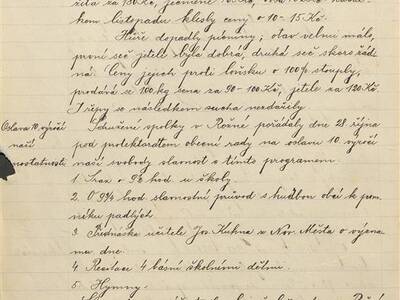 kem listopadu klesly ceny o 10-15 Kč.
Hůře dopadly pícniny; otav velmi málo,
první seč jetele byla dobrá, druhá seč skoro žád
ná. Ceny jejich proti loňsku o 100% stouply,
prodává se 100 kg sena za 90-100 Kč, jetele za 120 Kč
I řepy se následkem sucha nezdařily.
Oslava 10. výročí
naší
samostatnosti
Sdružené spolky v Rožné pořádaly dne 28. října
pod protektorátem obecní rady na oslavu 10. výročí
naší svobody slavnost s tímto programem:
1. Sraz o 9½ hod u školy.
2. O 9¾ hod slavnostní průvod s hudbou obcí k pom
níku padlých.
3. Přednáška učitele Jos. Kukna z Nov. Města o význa
mu dne.
4. Recitace 4 básní školními dětmi.
5. Hymny.